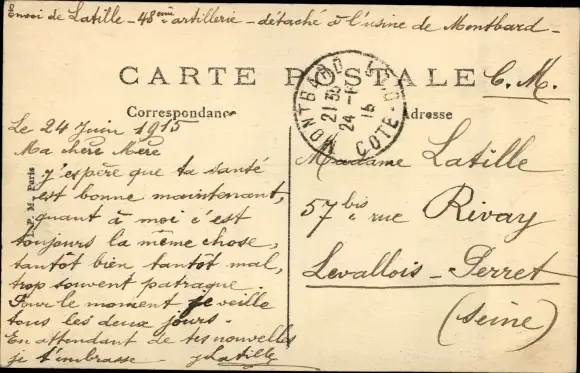 Envoi de Latille - 48ème artillerie - détaché à l'usine de Montbard -
CARTE POSTALE
C. M.
MONTBARD CÔTE-D'OR
21 35
24 - 6
15
Correspondance
Adresse
Le 24 Juin 1915
Ma chère Mère
j'espère que ta santé
est bonne maintenant,
quant à moi c'est
toujours la même chose,
tantôt bien tantôt mal,
trop souvent patraque.
Pour le moment je veille
tous les deux jours -
En attendant de tes nouvelles
je t'embrasse - JLatille
Madame Latille
57 bis rue Rivay
Levallois-Perret
(Seine)
Paris